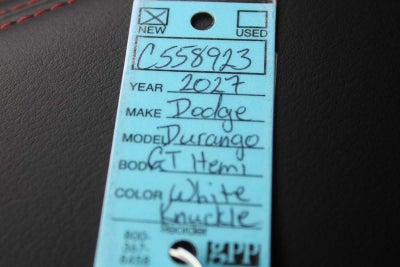 NEW USED
CS58923
YEAR 2027
MAKE Dodge
MODEL Durango
BODY GT Hemi
COLOR White
Knuckle
800-
gpp